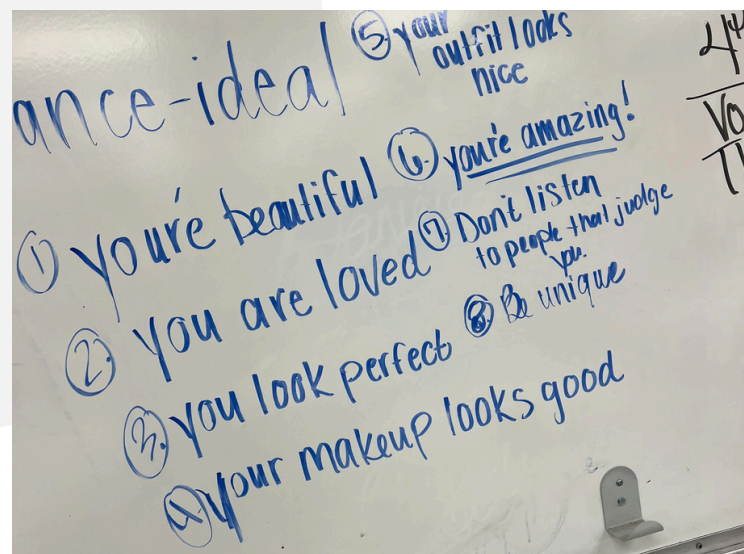 ance-ideal
① you're beautiful
② you are loved
③ you look perfect
④ your makeup looks good
⑤ your
outfit looks
nice
⑥ you're amazing!
⑦ Don't listen
to people that judge
you.
⑧ Be unique
4th